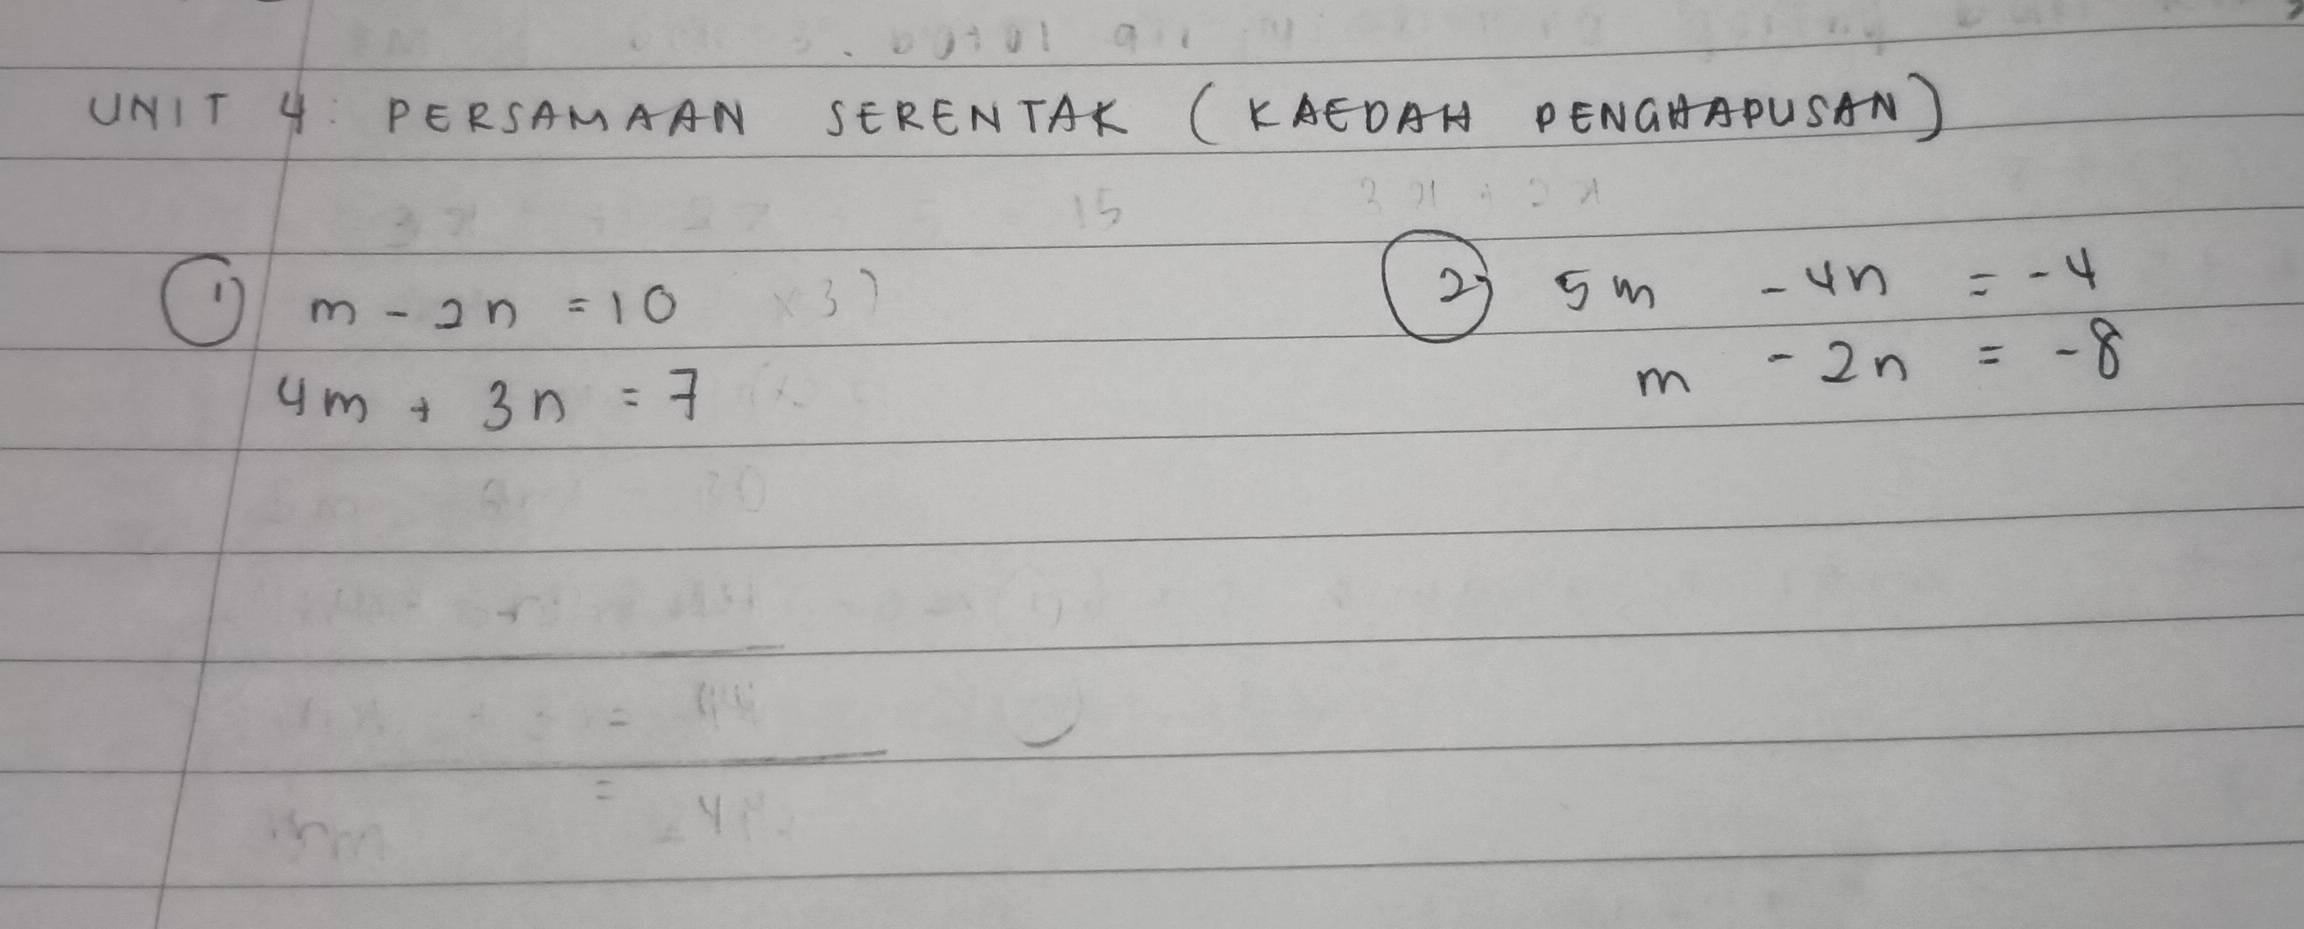 UNIT 4: PERSAMAAN SERENTAK (KAEDAH PENGHAPUSAN)
① m - 2n = 10
4m + 3n = 7
② 5m - 4n = -4
m - 2n = -8